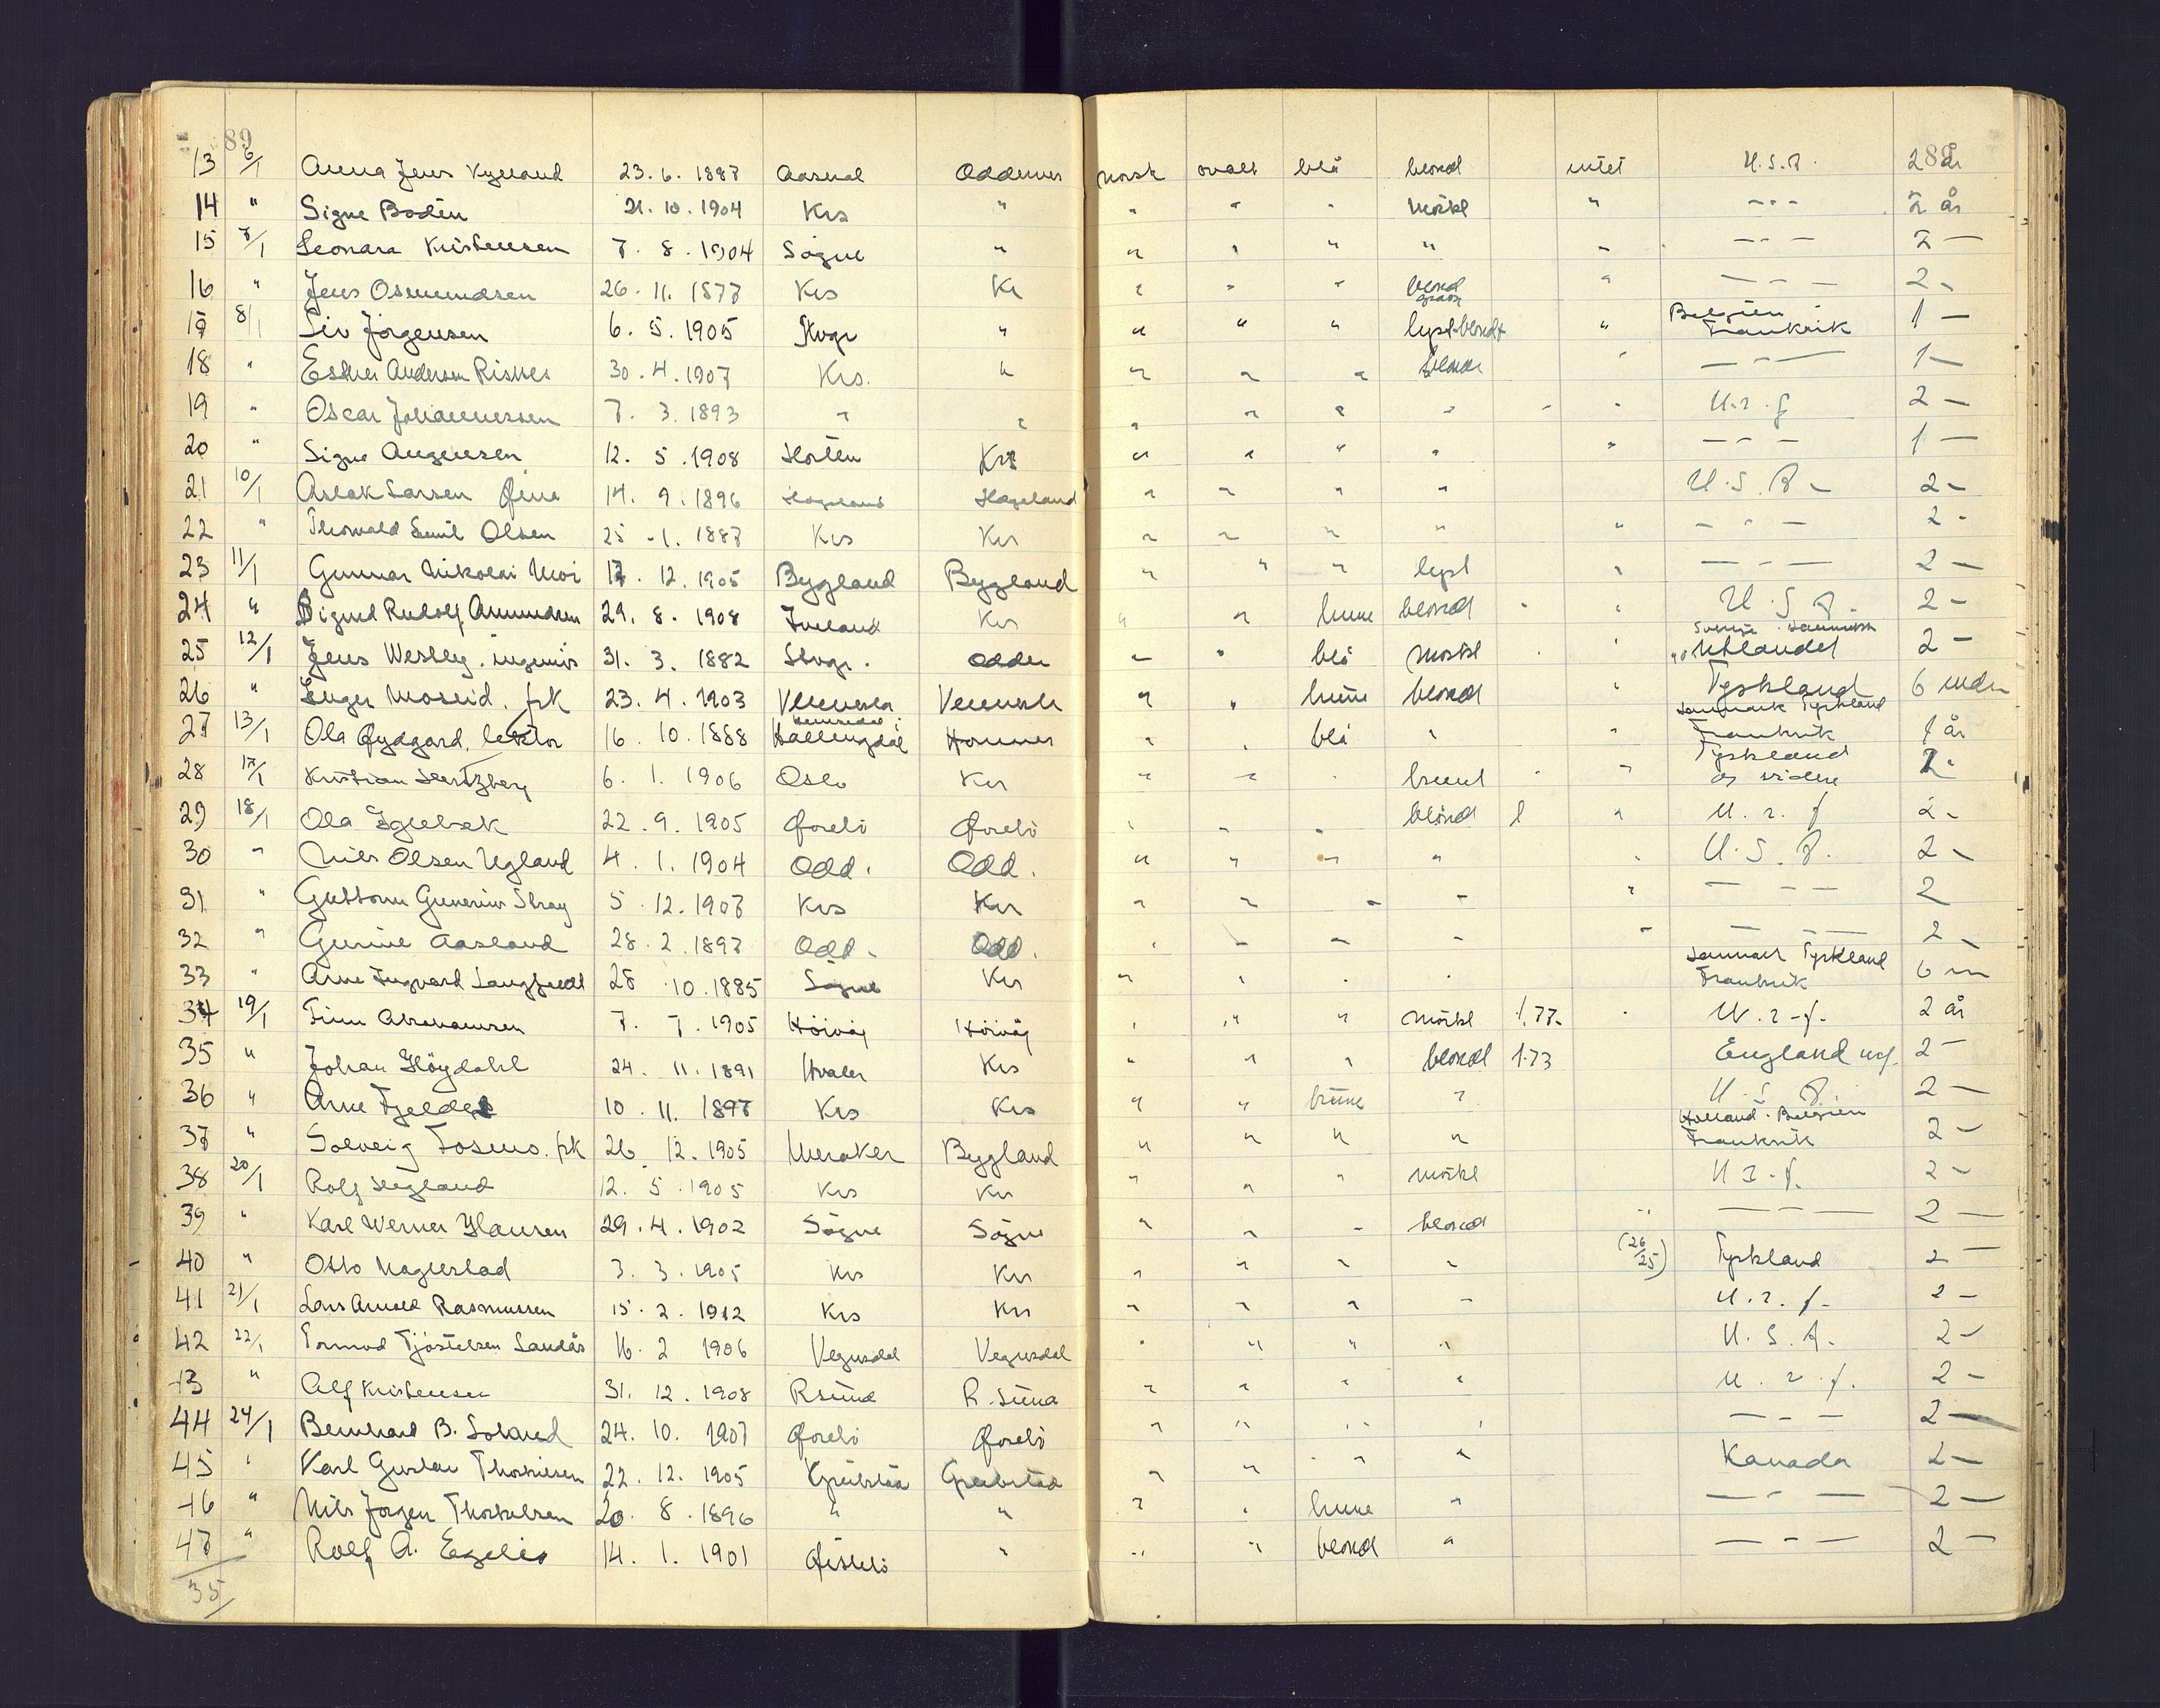 89 289
13 6/1 Anna Jens Kylland 23.6.1887 Aaseral Oddernes norsk ovalt blå blond intet U.S.A. 2 år
14 " Signe Bodén 21.10.1904 Krs " " " " mörkt " - - - 2 år
15 7/1 Leonara Kristensen 7.8.1904 Sögne " " " " " " - - - 2 —
16 " Jens Osmundsen 26.11.1877 Krs Kr " " " blond " - - - 2 -
17 8/1 Siv Jörgensen 6.5.1905 Stvgr " " " " lyst blondt " Belgien Frankrik 1 —
18 " Esther Andersen Risnes 30.4.1907 Krs. " " " " blond " - - - 1 —
19 " Oscar Johannessen 7.3.1893 " " " " " " " U.r.f 2 —
20 " Signe Augensen 12.5.1908 Horten Krs " " " " " - - - 1 —
21 10/1 Aslak Larsen 14.9.1896 Hægeland Hægeland " " " " U.S.A - 2 -
22 " Thorvald Emil Olsen 25.1.1887 Krs Kr " " " " " - - - 2 -
23 11/1 Gunnar Nikolai Moi 17.12.1905 Bygland Bygland " " " lyst " - - - 2 —
24 " Sigurd Rudolf Amundsen 29.8.1908 Iveland Kr " " brune blond " " U.S.A. 2 -
25 12/1 Jens Westby. ingeniör 31.3.1882 Stvgr. Odder " " blå mörkt " Sverige Danmark Utlandet 2 -
26 " Inger Moseid. frk 23.4.1903 Vennesla Vennesla " " brune blond " Tyskland 6 mdr
27 13/1 Ola Lydgard, lektor 16.10.1888 Hemsedal i Hallingdal Homnes " " blå " " Danmark Tyskland Frankrik 1 år
28 17/1 Kristian Hertzberg 6.1.1906 Oslo Kr " " " brunt " " Tyskland og videre 2 -
29 18/1 Ola 22.9.1905 " " " blond l " U.r.f 2 -
30 " Nils Olsen Ugland 4.1.1904 Odd. Odd. " " " " " U.S.A. 2 -
31 " Guttorm Gunerius Stray 5.12.1907 Krs Kr " " " " " - - - 2
32 " Gurine Aasland 28.2.1897 Odd. Odd. " " " " " - - - 2 -
33 " Arne Ingvard Langfeldt 28.10.1885 Sögne Kr " " " " Danmark Tyskland Frankrik 6 m
34 19/1 Finn Abrahamsen 7.7.1905 Höivåg Höivåg " " " mörkt 1.77. " U.r.f. 2 år
35 " Johan Höydahl 24.11.1891 Hvaler Krs " " " blond 1.73 England 2 -
36 " Arne Fjelde 10.11.1897 Krs Krs " " brune " U.S.A. 2 —
37 " Solveig Fosmo. frk 26.12.1905 Meraker Bygland " " " " Holland. Belgien Frankrik 2 —
38 20/1 Rolf Hegland 12.5.1905 Krs Kr " " " mörkt U.r.f. 2 -
39 " Karl Werner Hansen 29.4.1902 Sögne Sögne " " " blond " - - - 2 —
40 " Otto Magnestad 3.3.1905 Krs Kr " " " " (26/25) Tyskland 2 —
41 21/1 Lars Arnold Rasmussen 15.2.1912 Krs Kr " " " " U.r.f. 2 -
42 22/1 Tormod Tjöstelsen Landås 16.2 1906 Vegusdal Vegusdal " " " " U.S.A. 2 -
43 " Alf Kristensen 31.12.1908 R.sund R.sund " " " " U.r.f. 2 -
44 24/1 Bernhard B. 24.10.1907 " " " " - - - 2 —
45 " Karl Gustav 22.12.1905 " " " " Kanada 2 —
46 " Nils Jorgen Thorkelsen 20.8.1896 " " " " brune " - - - 2 —
47 " Rolf A. 14.1.1901 " " " blond " - - - 2 -
35